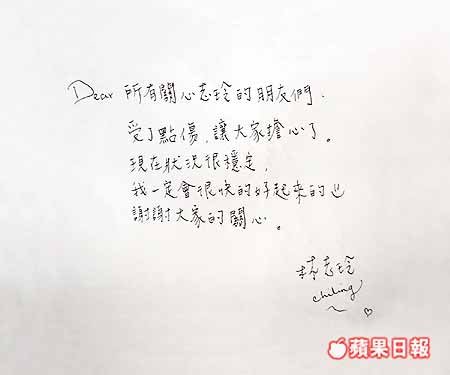 Dear 所有關心志玲的朋友們.
受了點傷,讓大家擔心了。
現在狀況很穩定,
我一定會很快的好起來的
謝謝大家的關心。
林志玲
chiling
蘋果日報